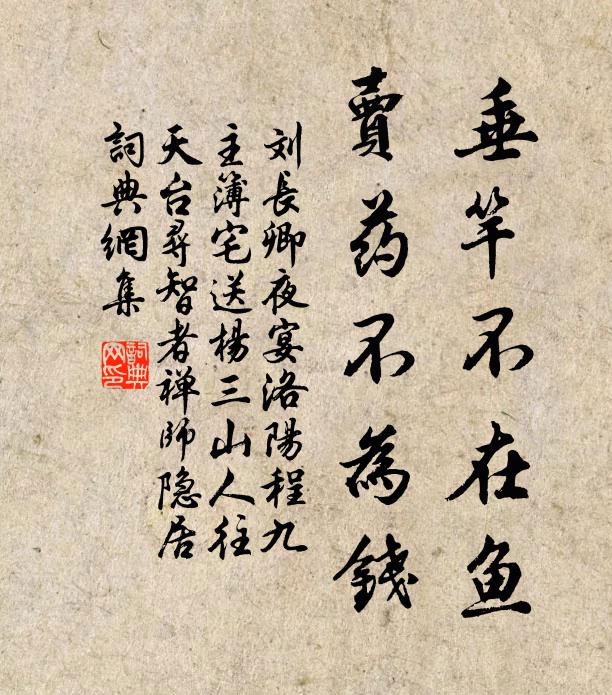 垂竿不在鱼
賣药不為錢
刘長卿夜宴洛陽程九
主簿宅送楊三山人往
天台尋智者禅師隐居
詞典網集
詞典网印